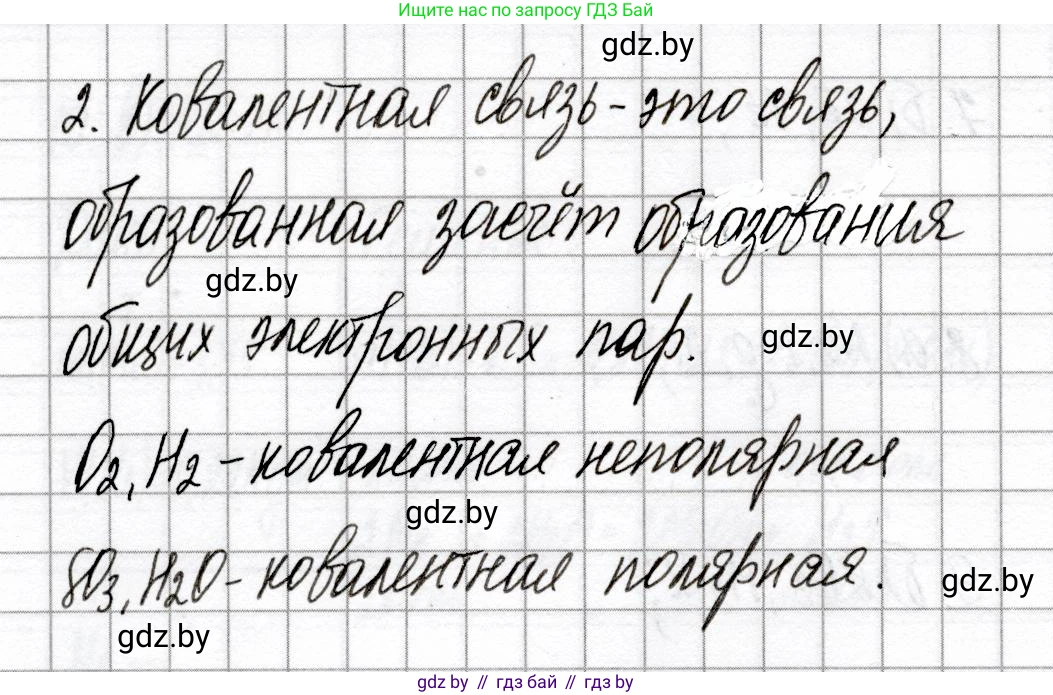 Ищите нас по запросу ГДЗ Бай
gdz.by
2. Ковалентная связь - это связь,
образованная засчёт образования
gdz.by
общих электронных пар.
gdz.by
O2, H2 - ковалентная неполярная
gdz.by
SO3, H2O - ковалентная полярная.
gdz.by
gdz.by
gdz.by // гдз бай // gdz.by